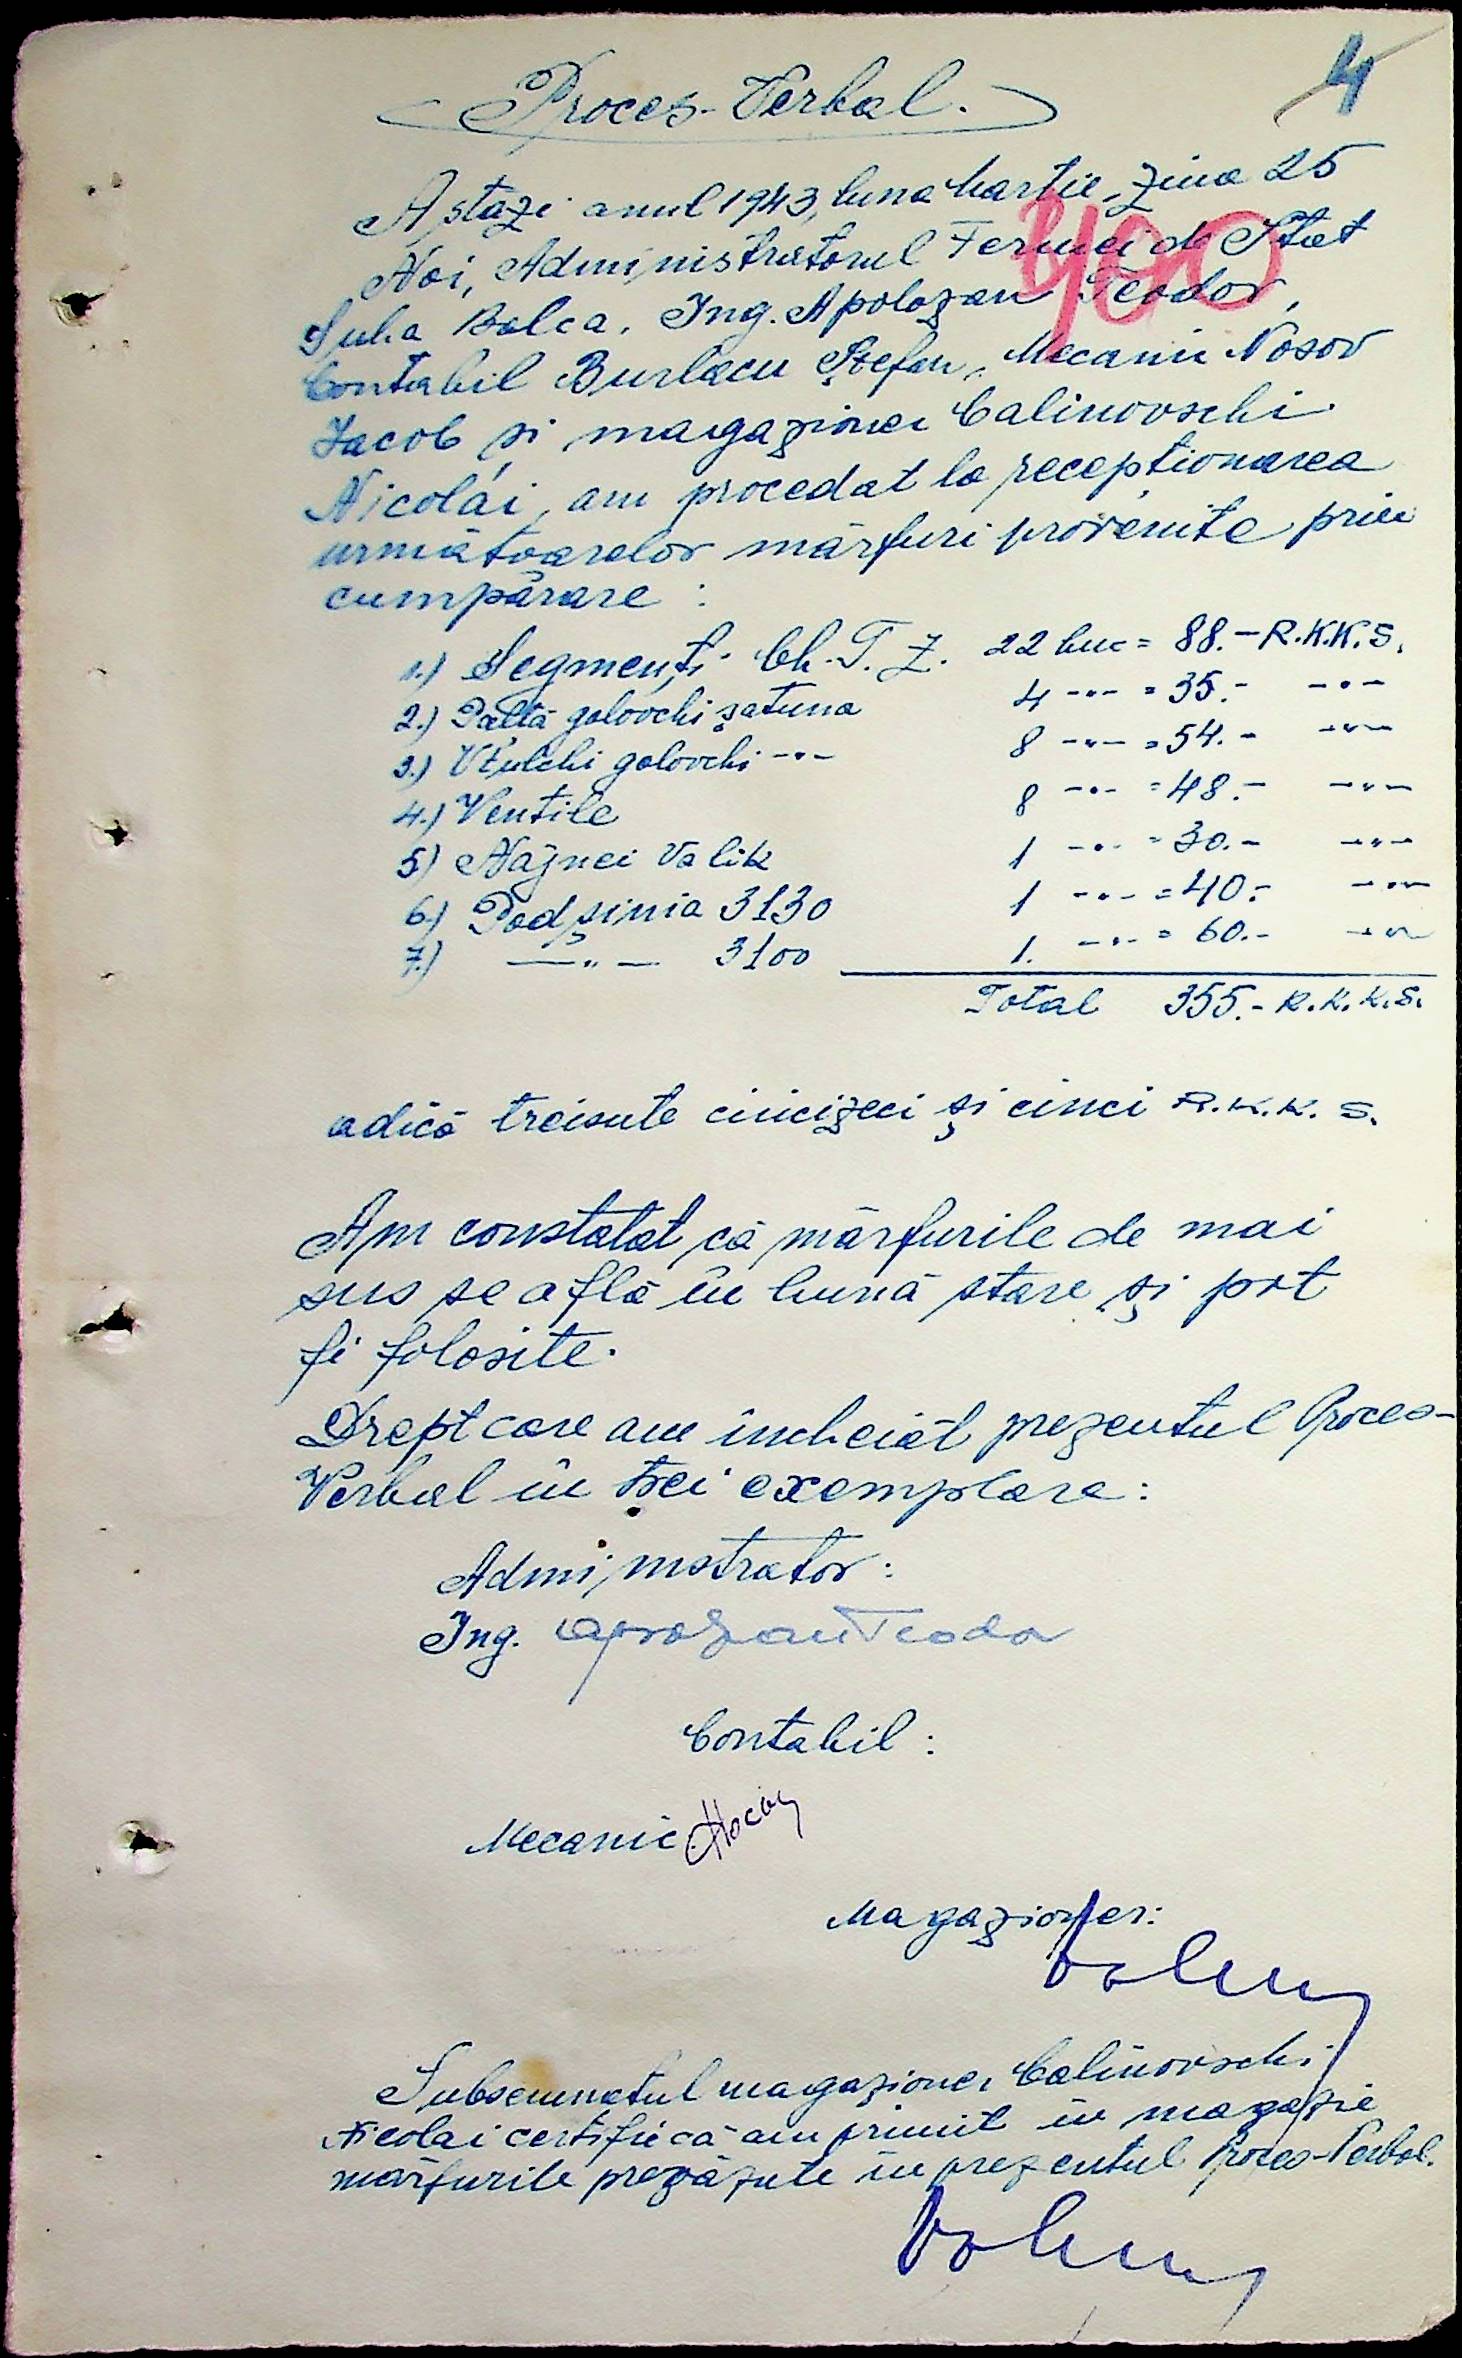 4
Proces-Verbal.
Astăzi anul 1943, luna Martie, ziua 25
400
Noi, Administratorul Fermei de Stat
Suha Balca, Ing. Apolozan Teodor,
Contabil Burlacu Ștefan, Mecanic Nosov
Iacob și magazioner Calinovschi
Nicolai, am procedat la recepționarea
următoarelor mărfuri provenite prin
cumpărare :
1.) Segmenți Ch. T. Z. 22 buc = 88.- R.K.K.S.
2.) Paltă golovchi șatuna 4 -"- = 35.- -"-
3.) Vtulchi golovchi -"- 8 -"- = 54.- -"-
4.) Ventile 8 -"- = 48.- -"-
5) Najnei Valik 1 -"- = 30.- -"-
6.) Podșinia 3130 1 -"- = 40.- -"-
7.) -"- 3100 1. -"- = 60.- -"-
Total 355.- R.K.K.S.
adică treisute cincizeci și cinci R.K.K.S.
Am constatat că mărfurile de mai
sus se află în bună stare și pot
fi folosite.
Drept care am încheiat prezentul Proces-
Verbal în trei exemplare:
Administrator:
Ing. Apolozan Teodor
Contabil :
Mecanic
Magazioner:
Subsemnatul magazioner Calinovschi
Nicolai certific că am primit în magazie
mărfurile prevăzute în prezentul Proces-Verbal.